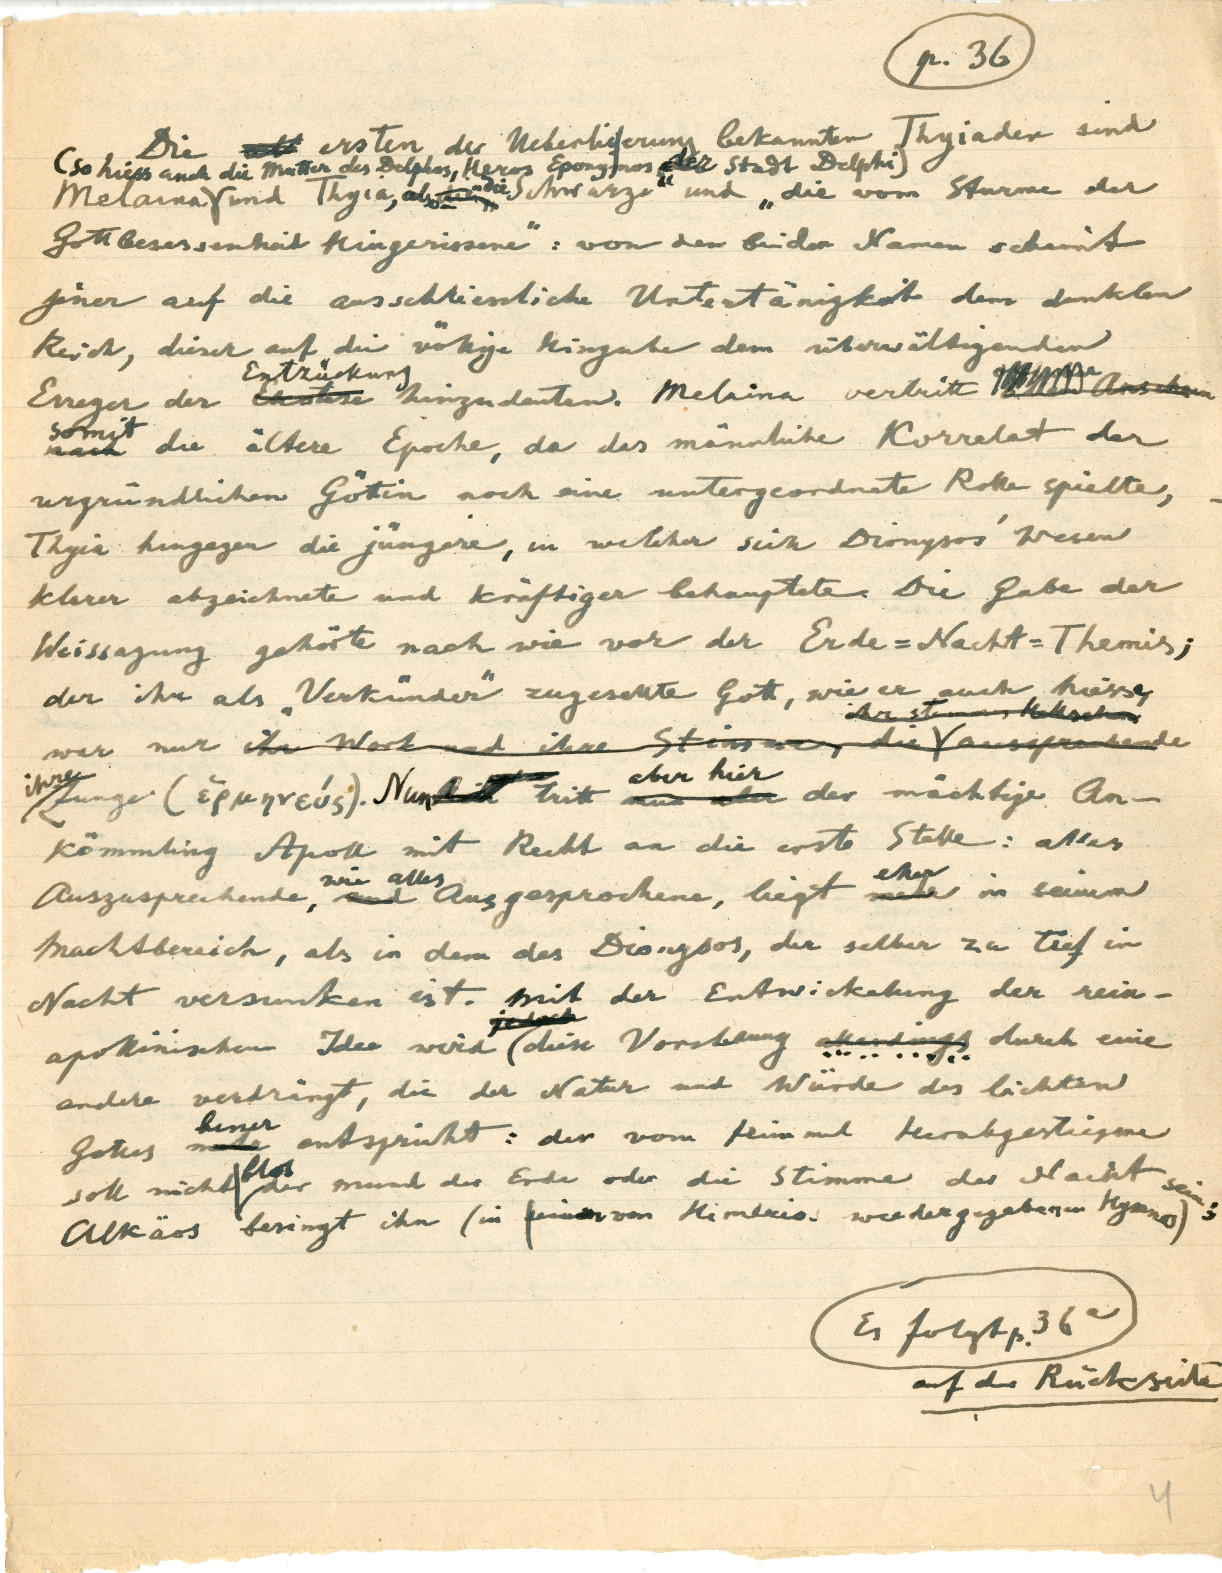 p. 36
Die ersten der Ueberlieferung bekannten Thyiaden sind
(so hiess auch die Mutter des Delphos, Heros Eponymos der Stadt Delphi)
Melaina und Thyia, als „die Schwarze“ und „die vom Sturme der
Gottbesessenheit Hingerissene“: von den beiden Namen scheint
jener auf die ausschliessliche Untertänigkeit dem dunklen
Reich, dieser auf die völlige Hingabe dem überwältigenden
Entzückung
Erreger der Ekstase hinzudeuten. Melaina vertritt Anschein
somit
nach die ältere Epoche, da das männliche Korrelat der
urgründlichen Göttin noch eine untergeordnete Rolle spielte, –
Thyia hingegen die jüngere, in welcher sich Dionysos' Wesen
klarer abzeichnete und kräftiger behauptete. Die Gabe der
Weissagung gehörte nach wie vor der Erde=Nacht=Themis;
der ihr als „Verkünder“ zugesellte Gott, wie er auch hiess,
ihr stummes
war nur ihr Wort und ihre Stimme, die aussprechende
ihre aber hier
Zunge (ἑρμηνεύς). Nun tritt nun aber der mächtige An-
kömmling Apoll mit Recht an die erste Stelle: alles
wie alles eher
Auszusprechende, und Ausgesprochene, liegt mehr in seinem
Machtbereich, als in dem des Dionysos, der selber zu tief in
Nacht versunken ist. Mit der Entwickelung der rein-
jedoch
apollinischen Idee wird diese Vorstellung allerdings durch eine
andere verdrängt, die der Natur und Würde des lichten
besser
Gottes mehr entspricht: der vom Himmel Herabgestiegene
blos
soll nicht der Mund der Erde oder die Stimme der Nacht sein;
Alkäos besingt ihn (in einem von Himerios wiedergegebenen Hymnos)
Es folgt p. 36a
auf der Rückseite
4